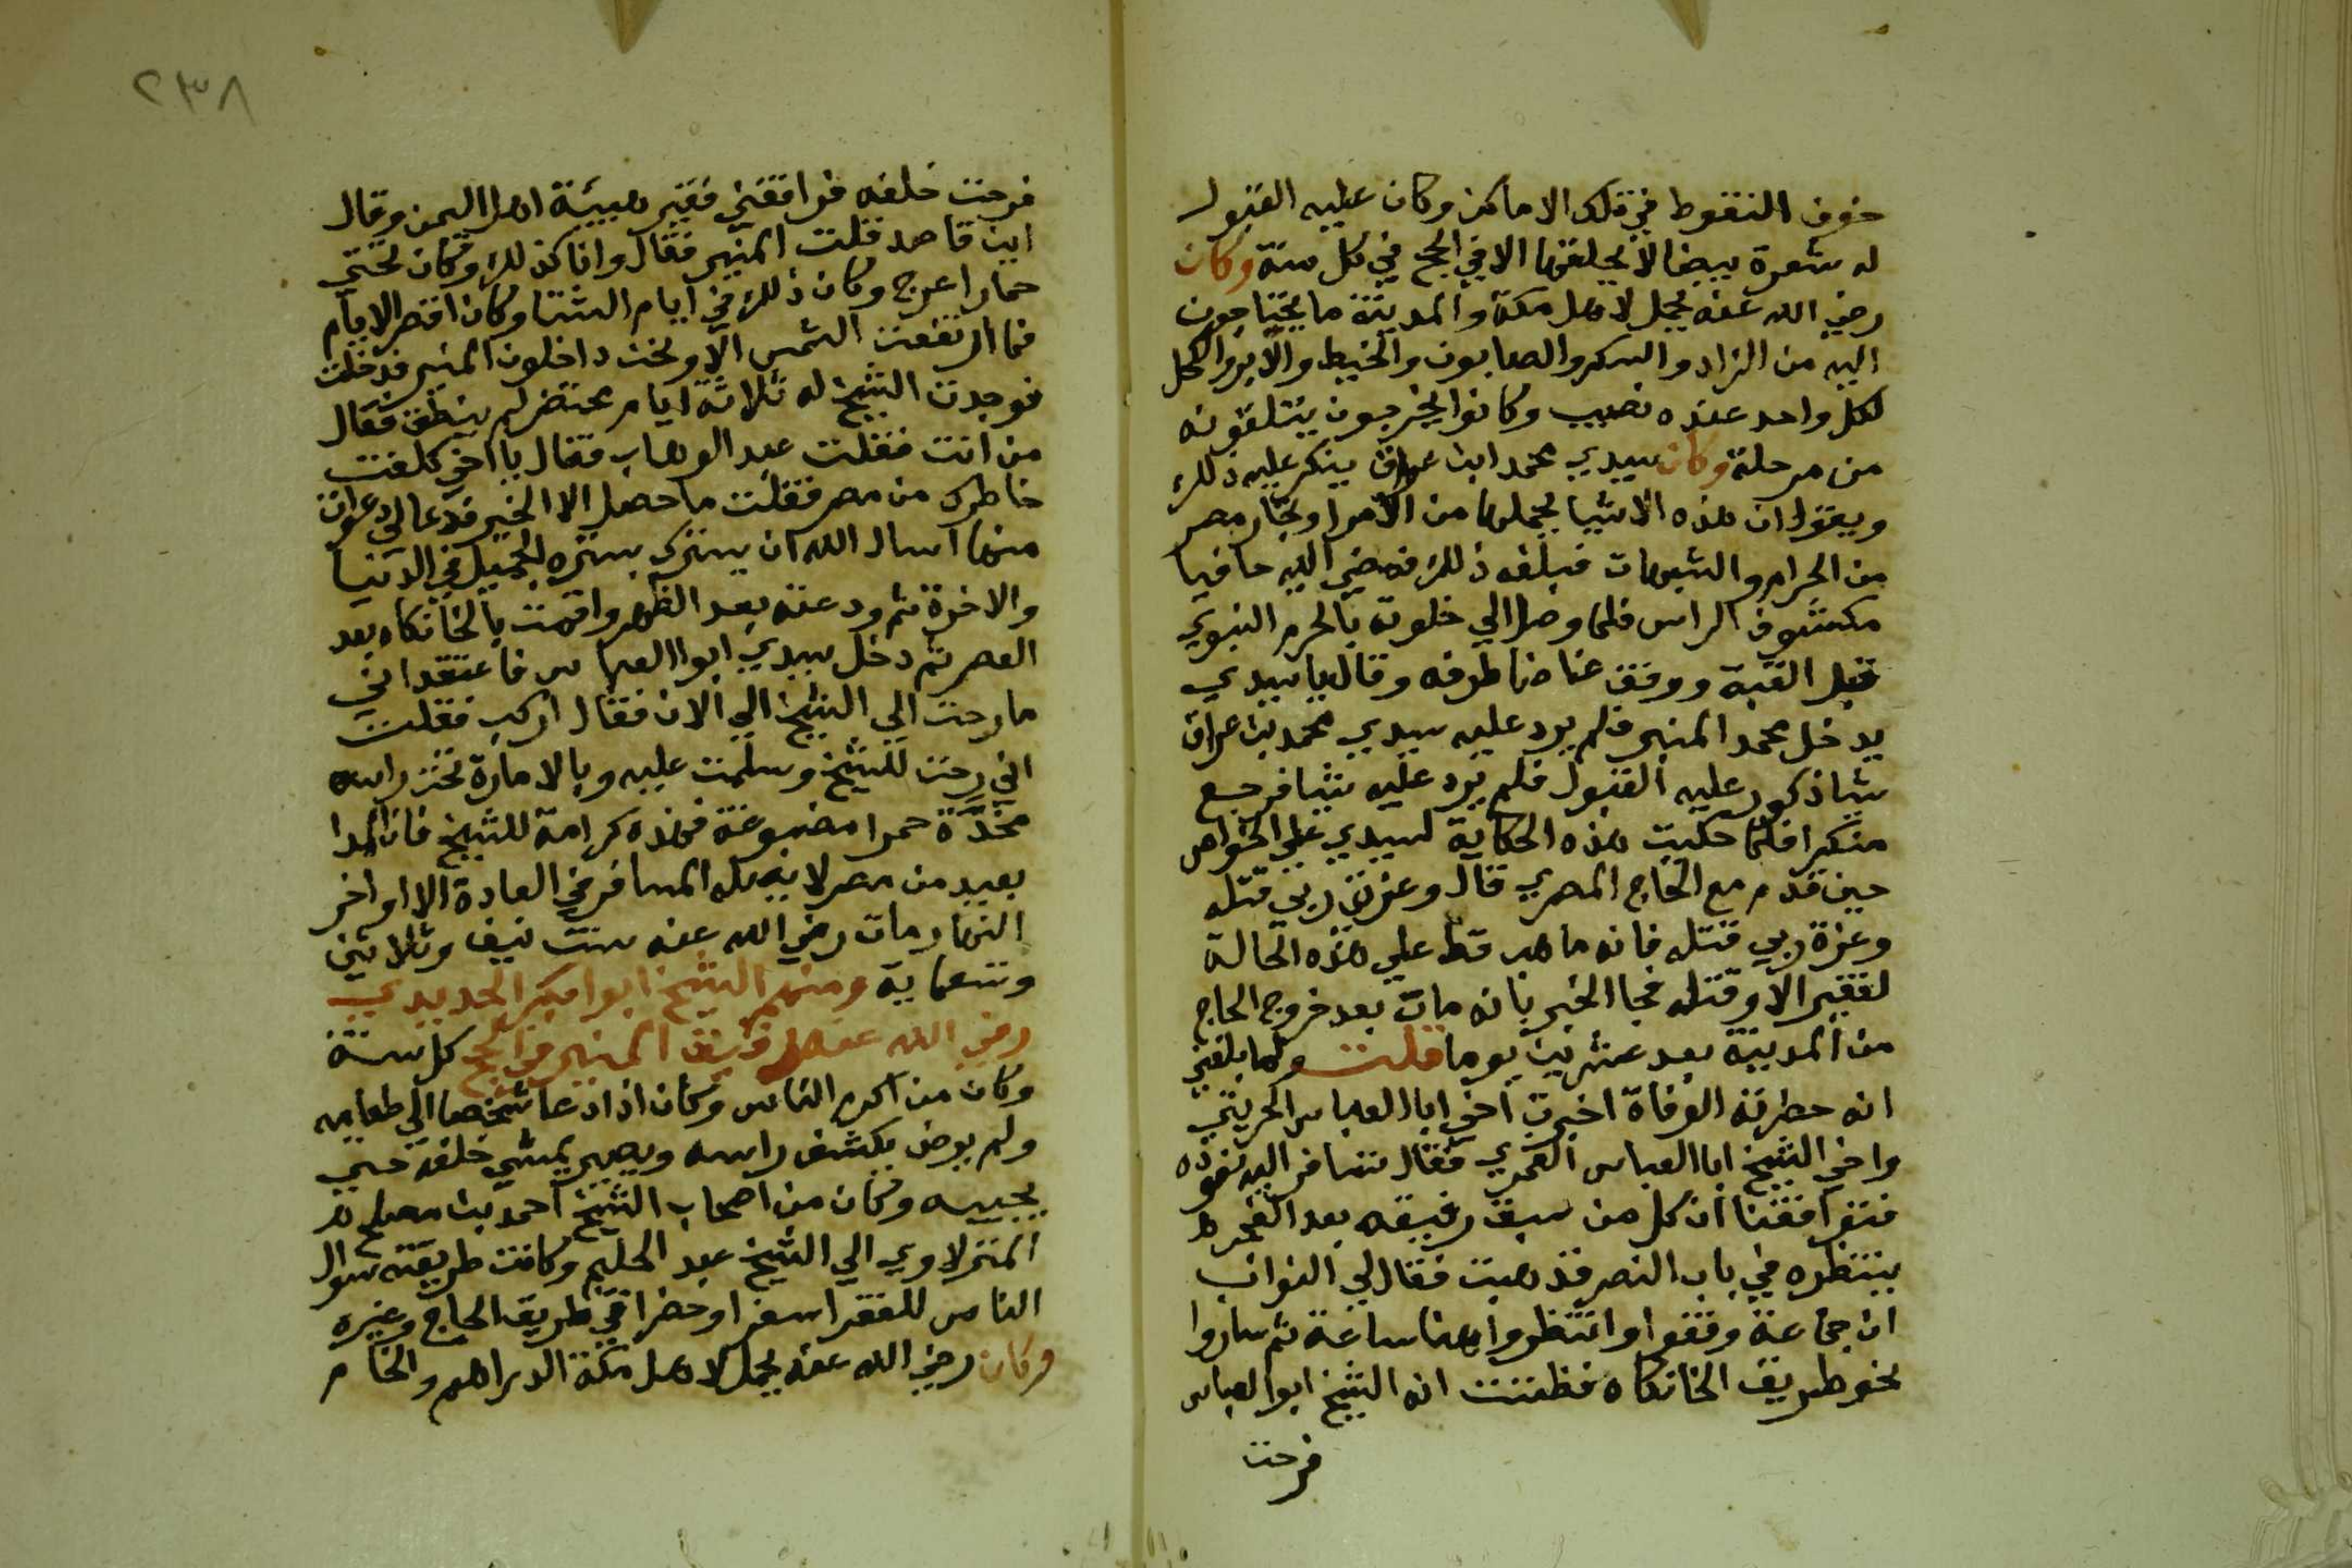 خوف النقوط في تلك الاماكن وكان عليه القبول
له شعرة بيضا لا يحلقها الا في الحج في كل سنة وكان
رضي الله عنه يحمل لاهل مكة والمدينة ما يحتاجون
اليه من الزاد والسكر والصابون والخيط والابر والكحل
لكل واحد عنده نصيب وكانوا يخرجون يتلقونه
من مرحلة وكان سيدي محمد ابن عراق ينكر عليه ذلك
ويقول ان هذه الاشيا يحملها من الامرا وتجار مصر
من الحرام والشبهات فبلغه ذلك فمضي اليه حافيا
مكشوف الراس فلما وصل الي خلوته بالحرم النبوي
قبل القبة ووقف غاضا طرفه وقال يا سيدي
يدخل محمد المنير فلم يرد عليه سيدي محمد بن عراق
شيا ذكور عليه القبول فلم يرد عليه شيا فرجع
منكرا فلما حكيت هذه الحكاية لسيدي علي الخواص
حين قدم مع الحاج المصري قال وعزة ربي قتله
وعزة ربي قتله فانه ما هد قط علي هذه الحالة
لفقير الا وقتله فجا الخبر بانه مات بعد خروج الحاج
من المدينة بعد عشرين يوما قلت ولما بلغني
انه حطرته الوفاة اخبرت اخي ابا العباس الحريثي
واخي الشيخ ابا العباس الغمري فقال نسافر اليه نعوده
فتوافقنا ان كل من سبق رفيقه بعد الفجر
ينتظره في باب النصر فذهبت فقال لي النواب
ان جماعة وقفوا وانتظروا هنا ساعة ثم ساروا
نحو طريق الخانكاه فظننت انه الشيخ ابو العباس
فرحت
٢٣٨
فرحت خلفه فرافقني فقير هيئة اهل اليمن وقال
اين قاصد قلت المنير فقال وانا كذلك وكان تحتي
حمار اعرج وكان ذلك في ايام الشتا وكان اقصر الايام
فما ارتفعت الشمس الا ونحن داخلون المنير فدخلت
فوجدت الشيخ له ثلاثة ايام محتضر لم ينطق فقال
من انت فقلت عبد الوهاب فقال يا اخي كلفت
خاطرك من مصر فقلت ما حصل الا الخير فدعا لي دعوات
منها اسال الله ان يسترك بستره الجميل في الدنيا
والاخرة ثم ودعته بعد الظهر واقمت بالخانكاه بعد
العصر ثم دخل سيدي ابو العباس فاعتقد اني
ما رحت الي الشيخ الي الان فقال اركب فقلت
اني رحت للشيخ وسلمت عليه وبالامارة تحت راسه
مخدة حمرا مصبوغة فهذه كرامة للشيخ فان المدا
بعيد من مصر لا يصله المسافر في العادة الا اواخر
النهار مات رضي الله عنه سنة نيف وثلاثين
وتسعماية ومنهم الشيخ ابو ابكر الحديدي
رضي الله عنه رفيق المنير في الحج كل سنة
وكان من اكرم الناس وكان اذا دعا شخصا الي طعامه
ولم يرض يكشف راسه ويصير يمشي خلفه حتي
يجيبه وكان من اصحاب الشيخ احمد بن مصلح
المنزلاوي الي الشيخ عبد الحليم وكانت طريقته سوال
الناس للفقرا سفرا وحضرا في طريق الحاج وغيره
وكان رضي الله عنه يحمل لاهل مكة الدراهم والخام